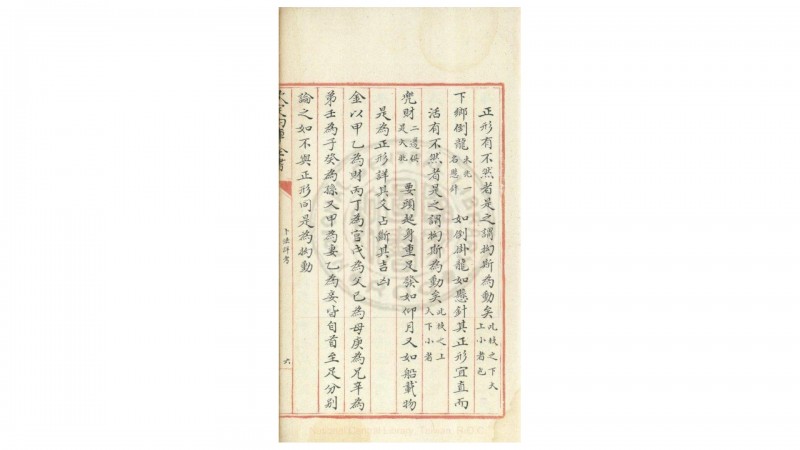 正形有不然者是之謂拗斯為動矣此枝之下大上小者也
下鄉倒龍木兆一名懸針如倒掛龍如懸針其正形宜直而
活有不然者是之謂拗斯為動矣此枝之上大下小者
兜財二邊編是入兜要頭起身重足發如仰月又如船載物
是為正形詳其爻占斷其吉凶
金以甲乙為財丙丁為官戊為父己為母庚為兄辛為
弟壬為子癸為孫又甲為妻乙為妾皆自首至足分別
論之如不與正形同是為拗動
欽定四庫全書
卜法詳考
六